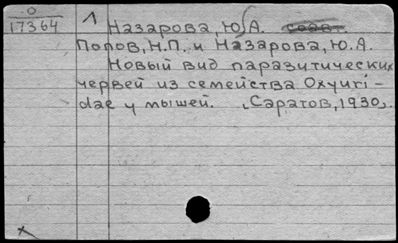 О
17364
1 Назарова, Ю.А. соав.
Попов, Н.П. и Назарова, Ю.А.
Новый вид паразитических
червей из семейства Oxyuri-
dae у мышей. [Саратов, 1930].